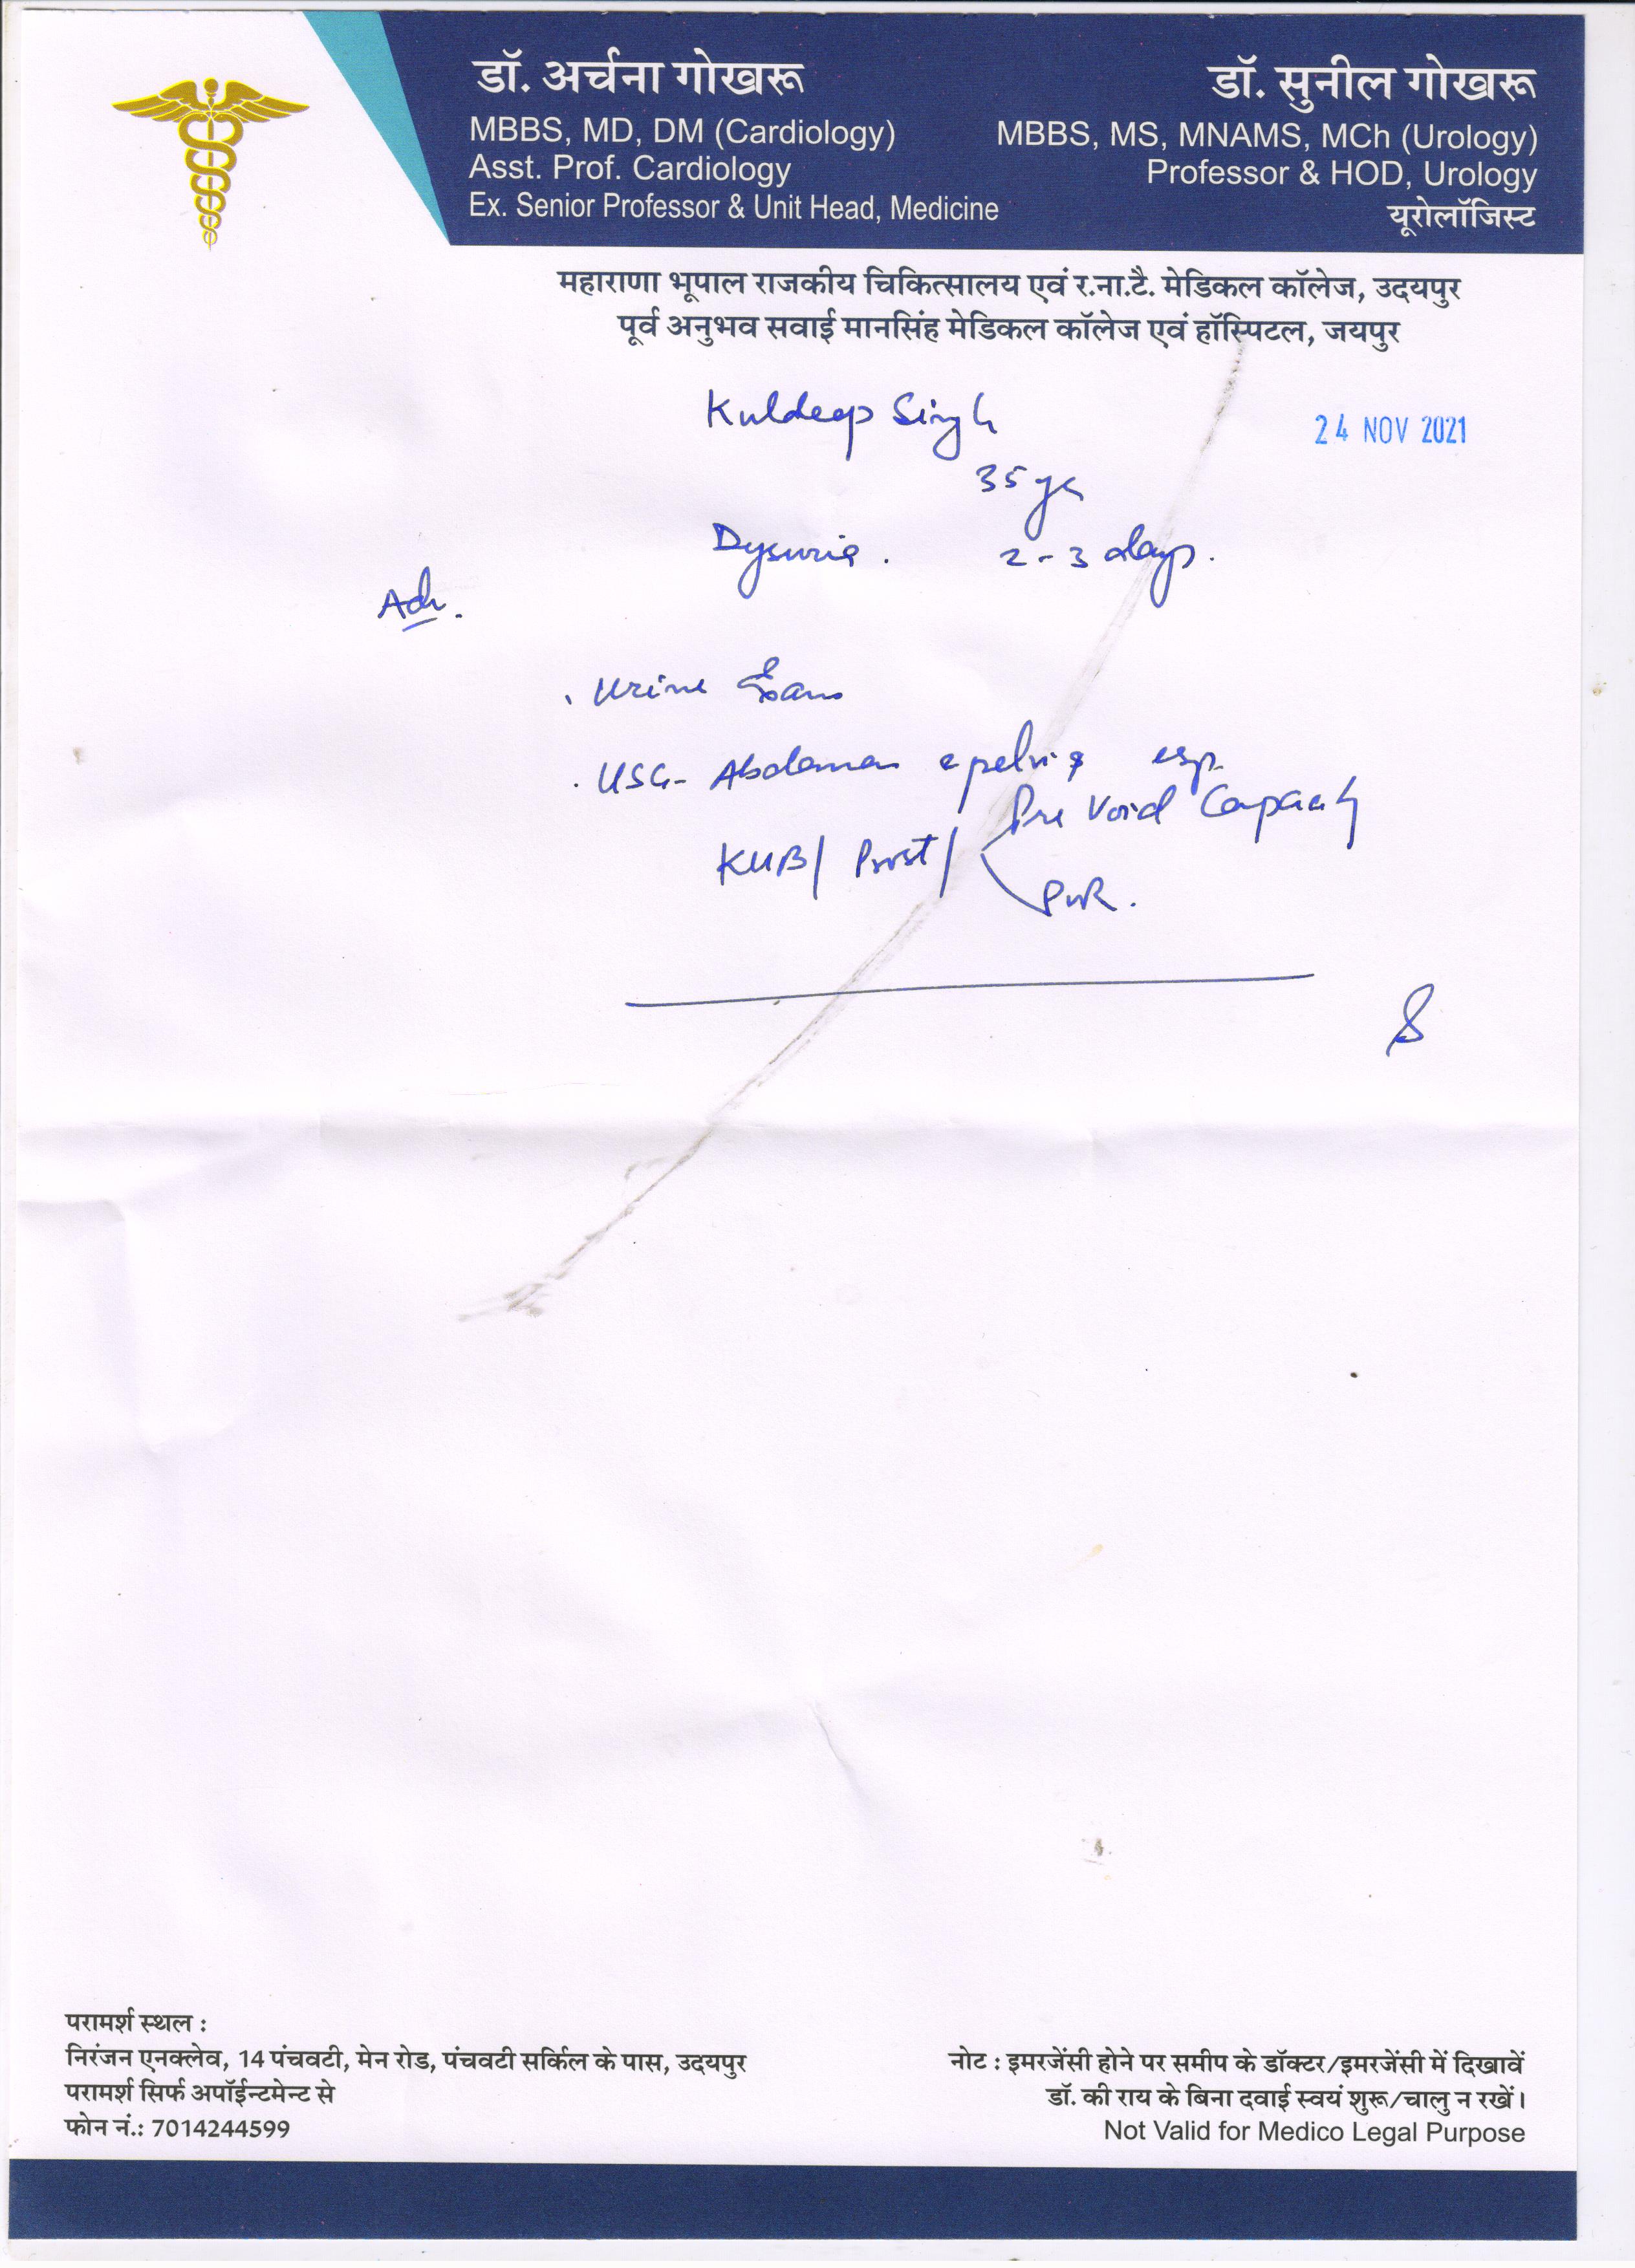 डॉ. अर्चना गोखरू
MBBS, MD, DM (Cardiology)
Asst. Prof. Cardiology
Ex. Senior Professor & Unit Head, Medicine
डॉ. सुनील गोखरू
MBBS, MS, MNAMS, MCh (Urology)
Professor & HOD, Urology
यूरोलॉजिस्ट
महाराणा भूपाल राजकीय चिकित्सालय एवं र.ना.टै. मेडिकल कॉलेज, उदयपुर
पूर्व अनुभव सवाई मानसिंह मेडिकल कॉलेज एवं हॉस्पिटल, जयपुर
Kuldeep Singh
24 NOV 2021
35 yrs
Dysuria. 2-3 days.
Adv.
. Urine Exam
. USG- Abdomen & pelvis esp.
Pre Void Capacity
KUB/ Prost/
PVR.
परामर्श स्थल :
निरंजन एनक्लेव, 14 पंचवटी, मेन रोड, पंचवटी सर्किल के पास, उदयपुर
परामर्श सिर्फ अपॉईन्टमेन्ट से
फोन नं.: 7014244599
नोट : इमरजेंसी होने पर समीप के डॉक्टर/इमरजेंसी में दिखावें
डॉ. की राय के बिना दवाई स्वयं शुरू/चालु न रखें।
Not Valid for Medico Legal Purpose